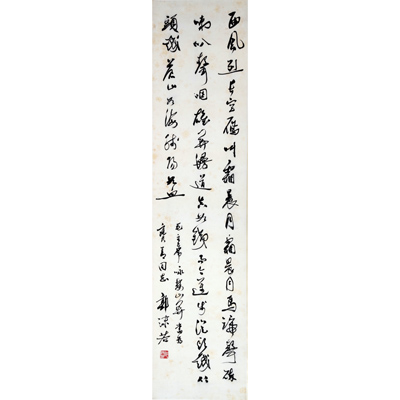 西風烈長空雁叫霜晨月霜晨月馬蹄聲碎
喇叭聲咽雄關漫道真如鐵而今邁步從頭越從
頭越蒼山如海殘陽如血
毛主席詠婁山關 書為
同志 郭沫若